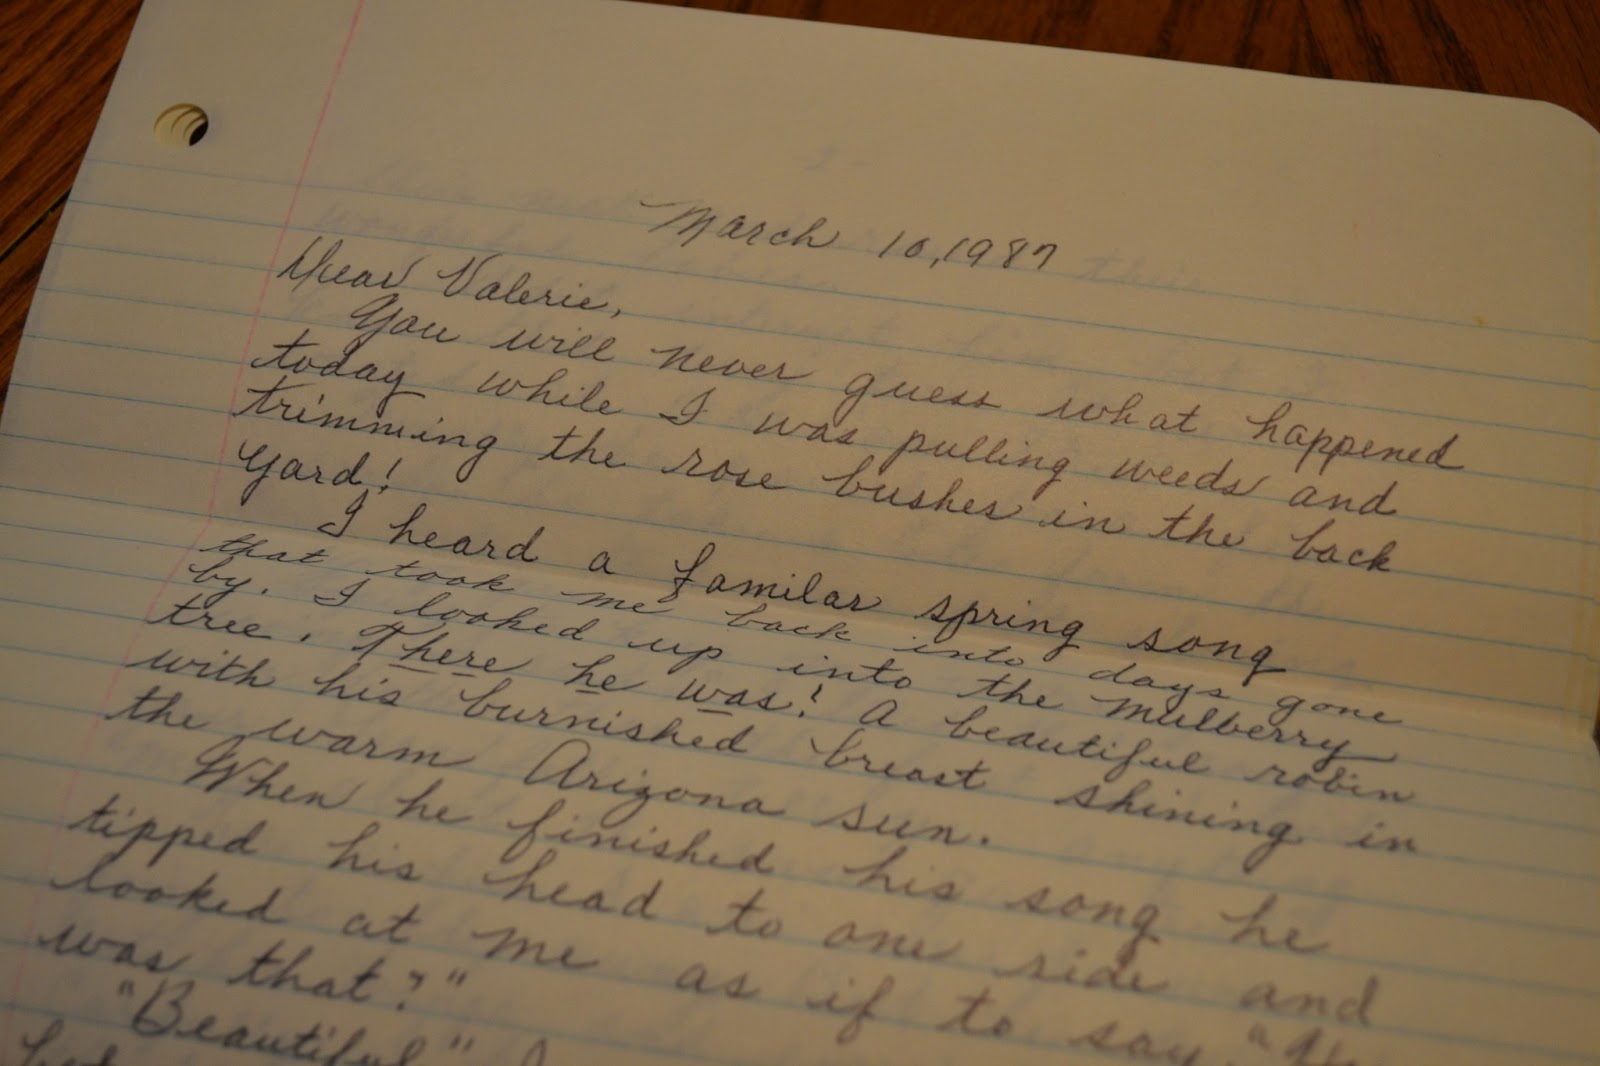 March 10, 1987
Dear Valerie,
You will never guess what happened
today while I was pulling weeds and
trimming the rose bushes in the back
yard!
I heard a familar spring song
that took me back into days gone
by. I looked up into the mulberry
tree. There he was! A beautiful robin
with his burnished breast shining in
the warm Arizona sun.
When he finished his song he
tipped his head to one side and
looked at me as if to say, "
was that?"
"Beautiful"